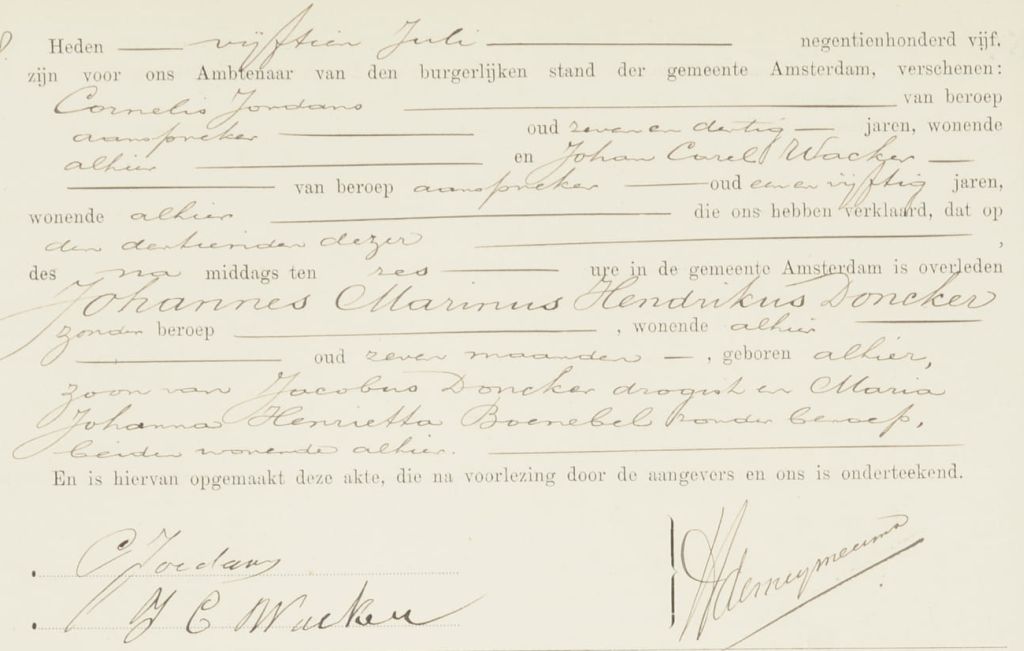 Heden vijftien Juli negentienhonderd vijf,
zijn voor ons Ambtenaar van den burgerlijken stand der gemeente Amsterdam, verschenen:
Cornelis Jordans van beroep
aanspreker oud zeven en dertig jaren, wonende
alhier en Johan Carel Wacker
van beroep aanspreker oud een en vijftig jaren,
wonende alhier die ons hebben verklaard, dat op
den dertienden dezer,
des na middags ten zes ure in de gemeente Amsterdam is overleden
Johannes Marinus Hendrikus Doncker
zonder beroep, wonende alhier
oud zeven maanden, geboren alhier,
zoon van Jacobus Doncker drogist en Maria
Johanna Henrietta Boenebel zonder beroep,
beiden wonende alhier.
En is hiervan opgemaakt deze akte, die na voorlezing door de aangevers en ons is onderteekend.
C Jordans
J C Wacker